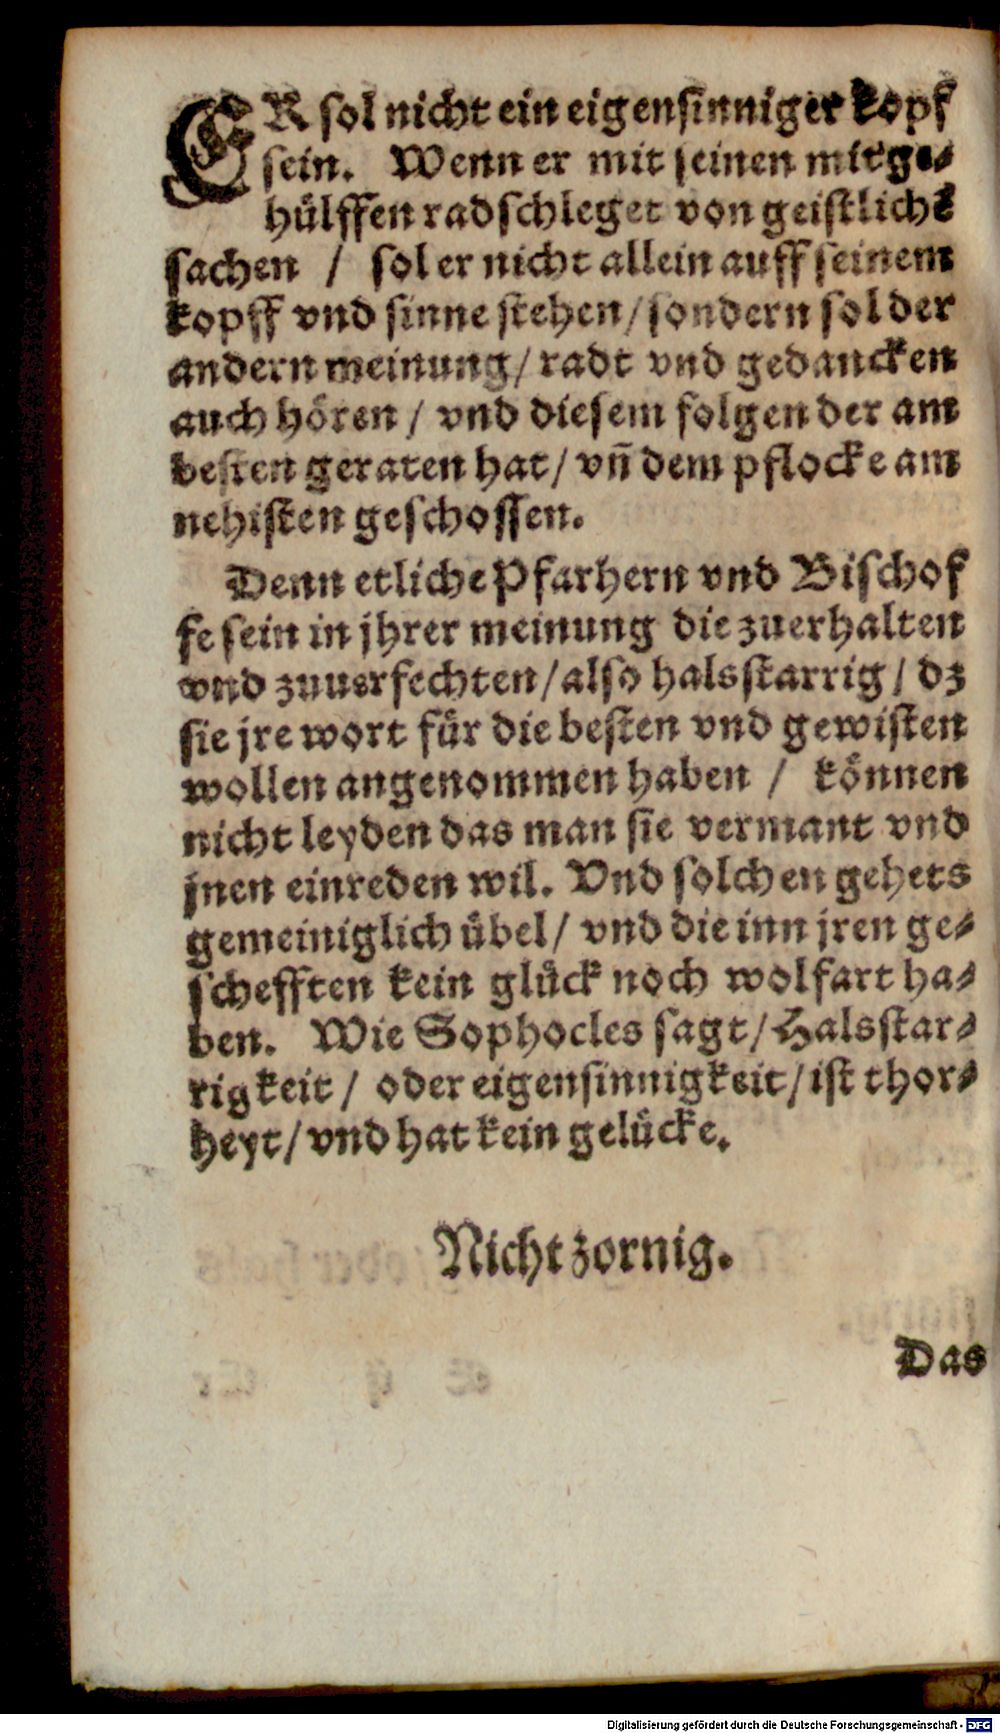 ER sol nicht ein eigensinniger kopf
sein. Wenn er mit seinen mitge-
hülffen radschleget von geistlichē
sachen / sol er nicht allein auff seinem
kopff vnd sinne stehen / sondern sol der
andern meinung / radt vnd gedancken
auch hören / vnd diesem folgen der am
besten geraten hat / vñ dem pflocke am
nehisten geschossen.
Denn etliche Pfarhern vnd Bischof
fe sein in jhrer meinung die zuerhalten
vnd zuuerfechten / also halsstarrig / dz
sie jre wort für die besten vnd gewisten
wollen angenommen haben / können
nicht leyden das man sie vermant vnd
jnen einreden wil. Vnd solchen gehets
gemeiniglich übel / vnd die inn jren ge-
schefften kein glück noch wolfart ha-
ben. Wie Sophocles sagt / Halsstar-
rigkeit / oder eigensinnigkeit / ist thor-
heyt / vnd hat kein gelücke.
Nicht zornig.
Das
Digitalisierung gefördert durch die Deutsche Forschungsgemeinschaft - DFG